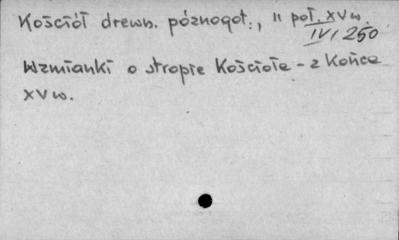 Kościół drewn. póznogot., II poł. XV w.
IV/250
Wzmianki o stropie Kościoła - z Końca
XV w.